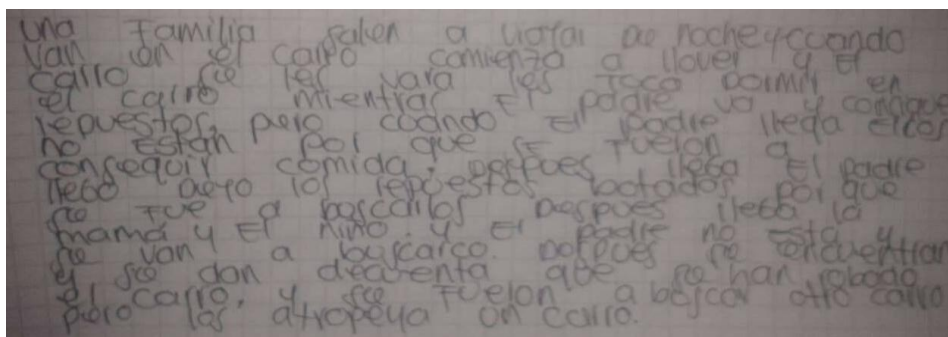 una Familia salen a viajar de noche y cuando
van en el carro comienza a llover y El
carro se les vara les Toca Dormir en
el carro mientras El padre va y consigue
repuestos, pero cuando El padre llega ellos
no Estan por que se Fueron a
conseguir comida, Despues llega El padre
llego dejo los repuestos botados por que
se Fue a boscarlos Despues llego la
mamá y El niño y El padre no Esta y
se van a buscarlo. Despues se encuentran
y se dan decuenta que se han robado
el carro, y se Fueron a boscar otro carro
pero los atropeya on carro.